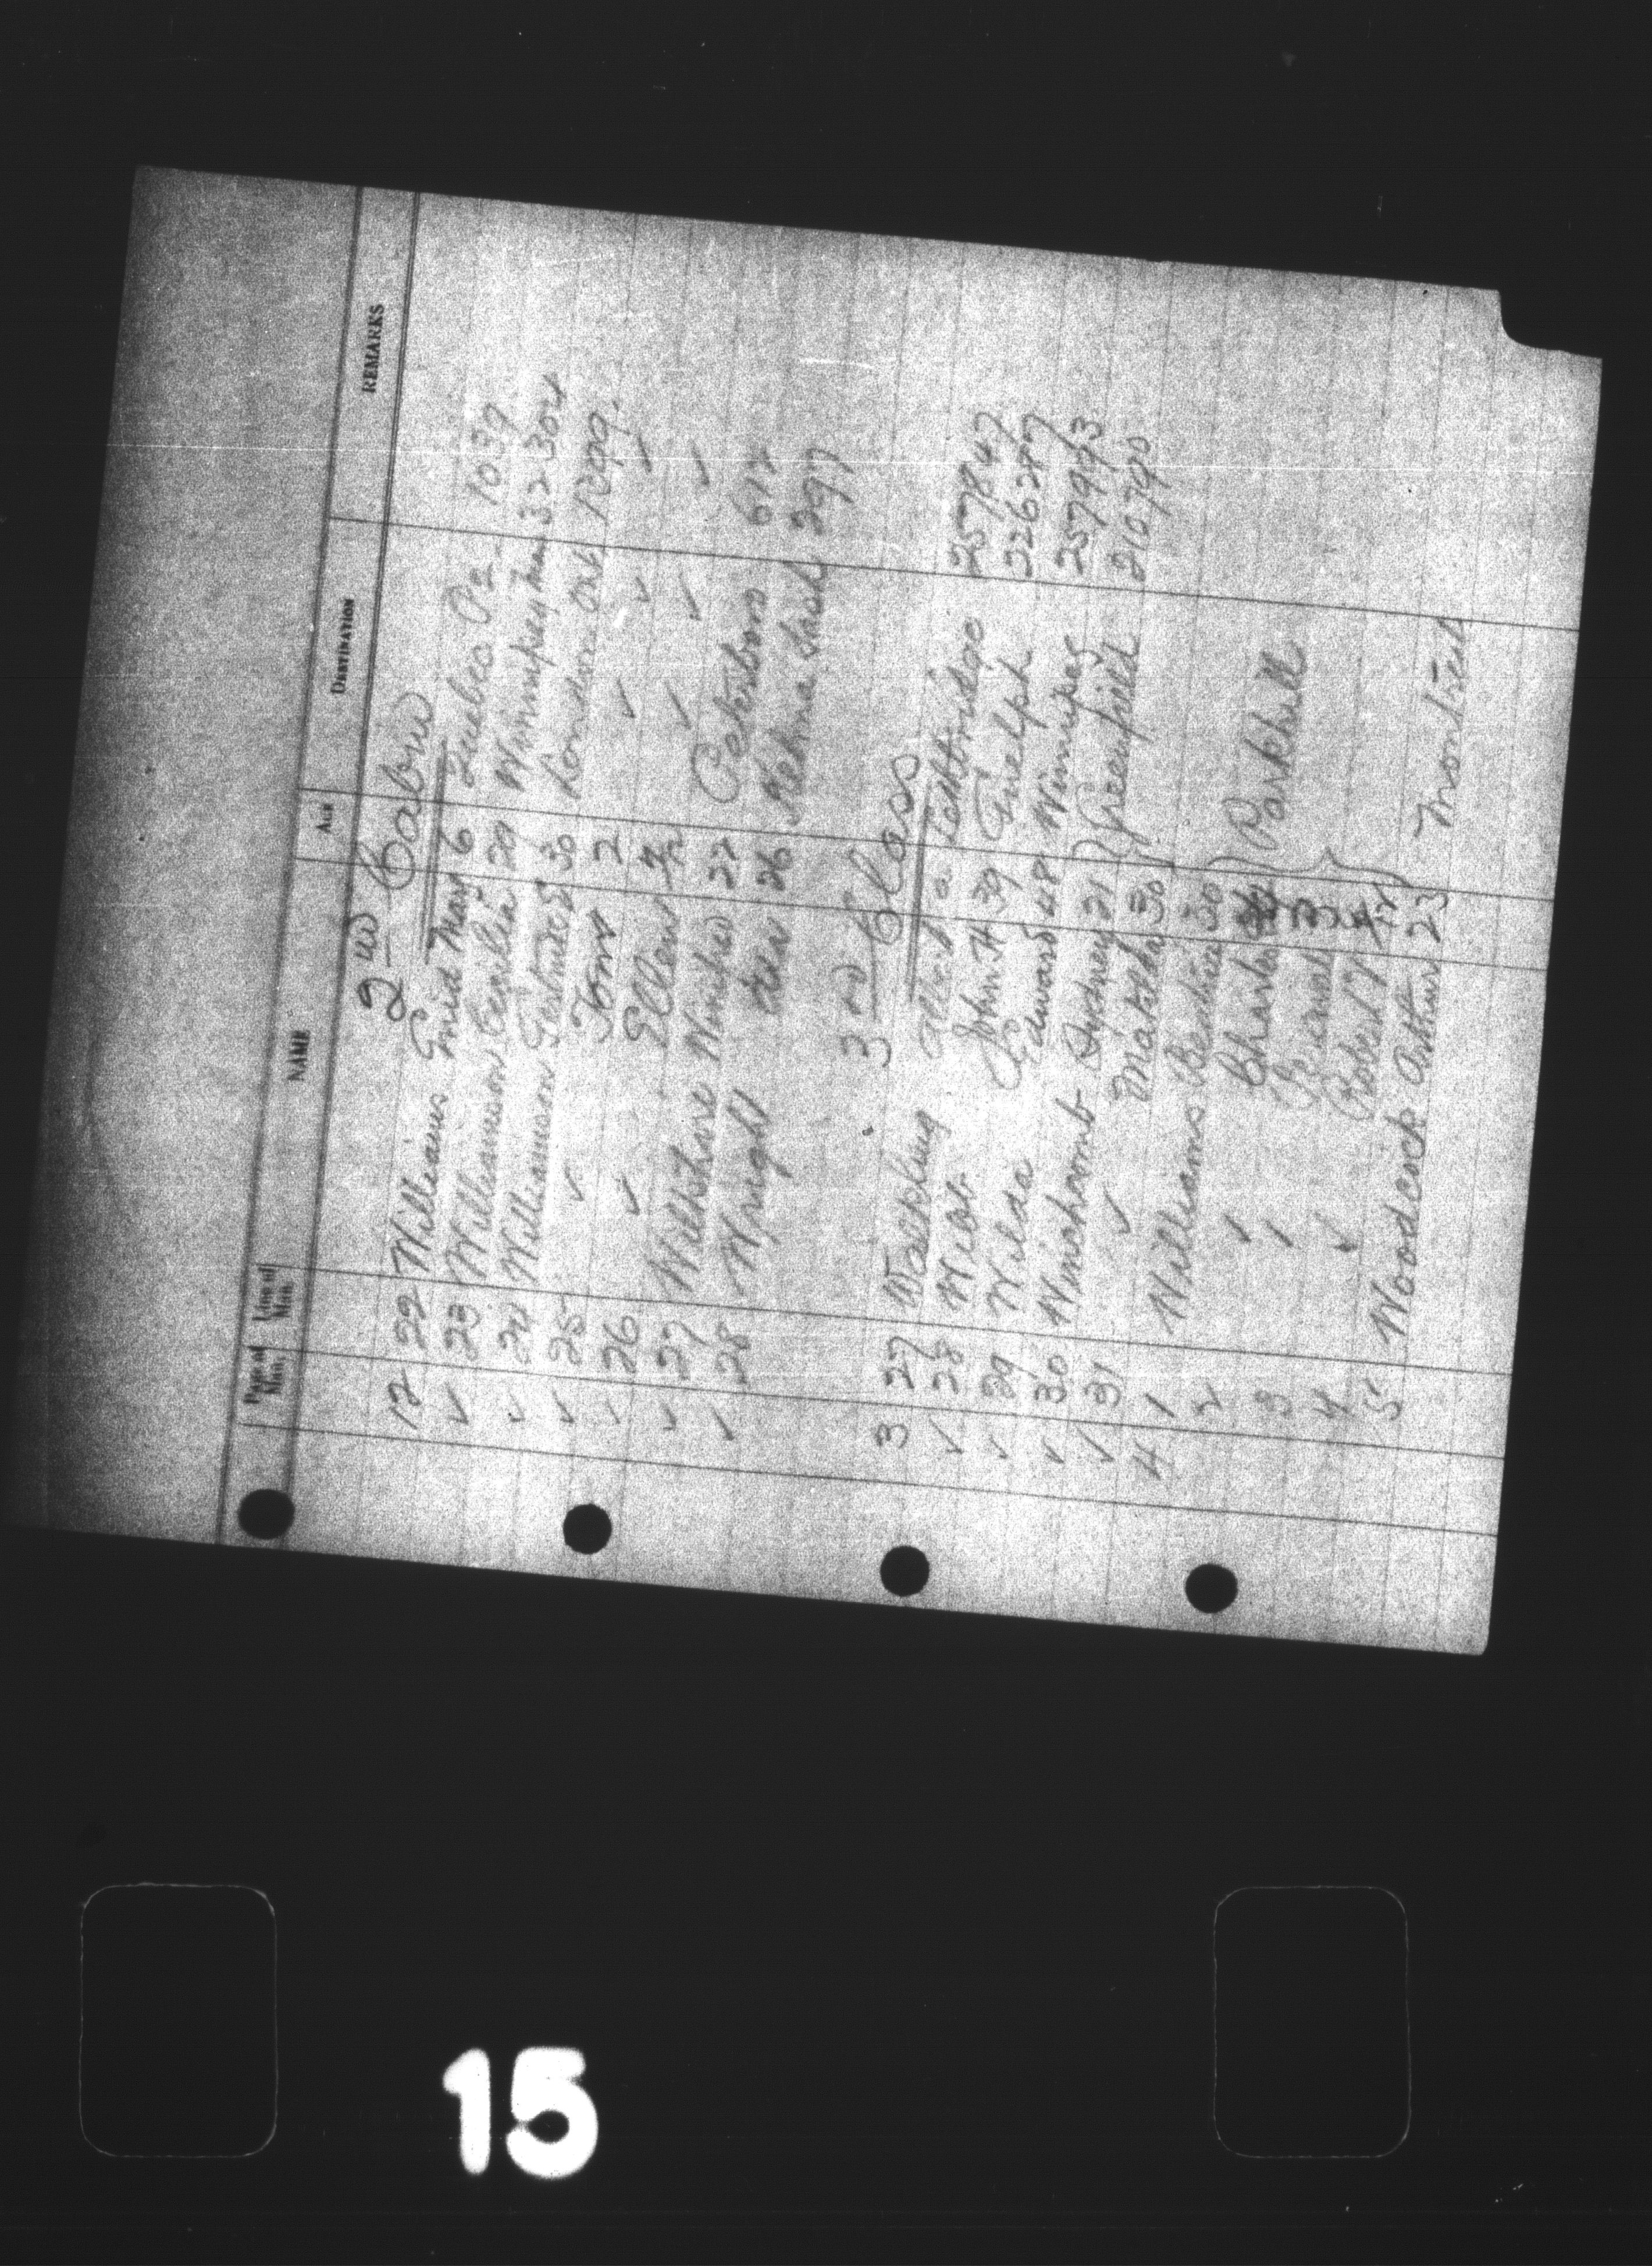 Page of Man. Line of Man. NAME AGE DESTINATION REMARKS
2nd Cabin
12 22 Williams Enid Mary 6 Quebec P2 1039
✓ 23 Williamson Cecilia 29 Winnipeg Man 32304
✓ 24 Williamson Gertrude 30 London Ont 1299
✓ 25 ✓ Tom 2 ✓ ✓ ✓
✓ 26 ✓ Ellen ✓ ✓ ✓
✓ 27 Wiltshire Winifred 22 Peterboro 612
✓ 28 Wright 26 Sask 297
3rd Class
3 27 Watkling Lethbridge 257847
✓ 28 West John H 39 Guelph 226287
✓ 29 Wilda Edward 48 Winnipeg 257993
✓ 30 Winchcomb Sydney 21 } Greenfield 210790
✓ 31 ✓ Matilda 30
4 1 Williams Beatrice 30 } Parkhill
2 ✓ Charles
3 ✓ Ernest 3
4 ✓ Robert
5 Woodcock Arthur 23 Montreal
15